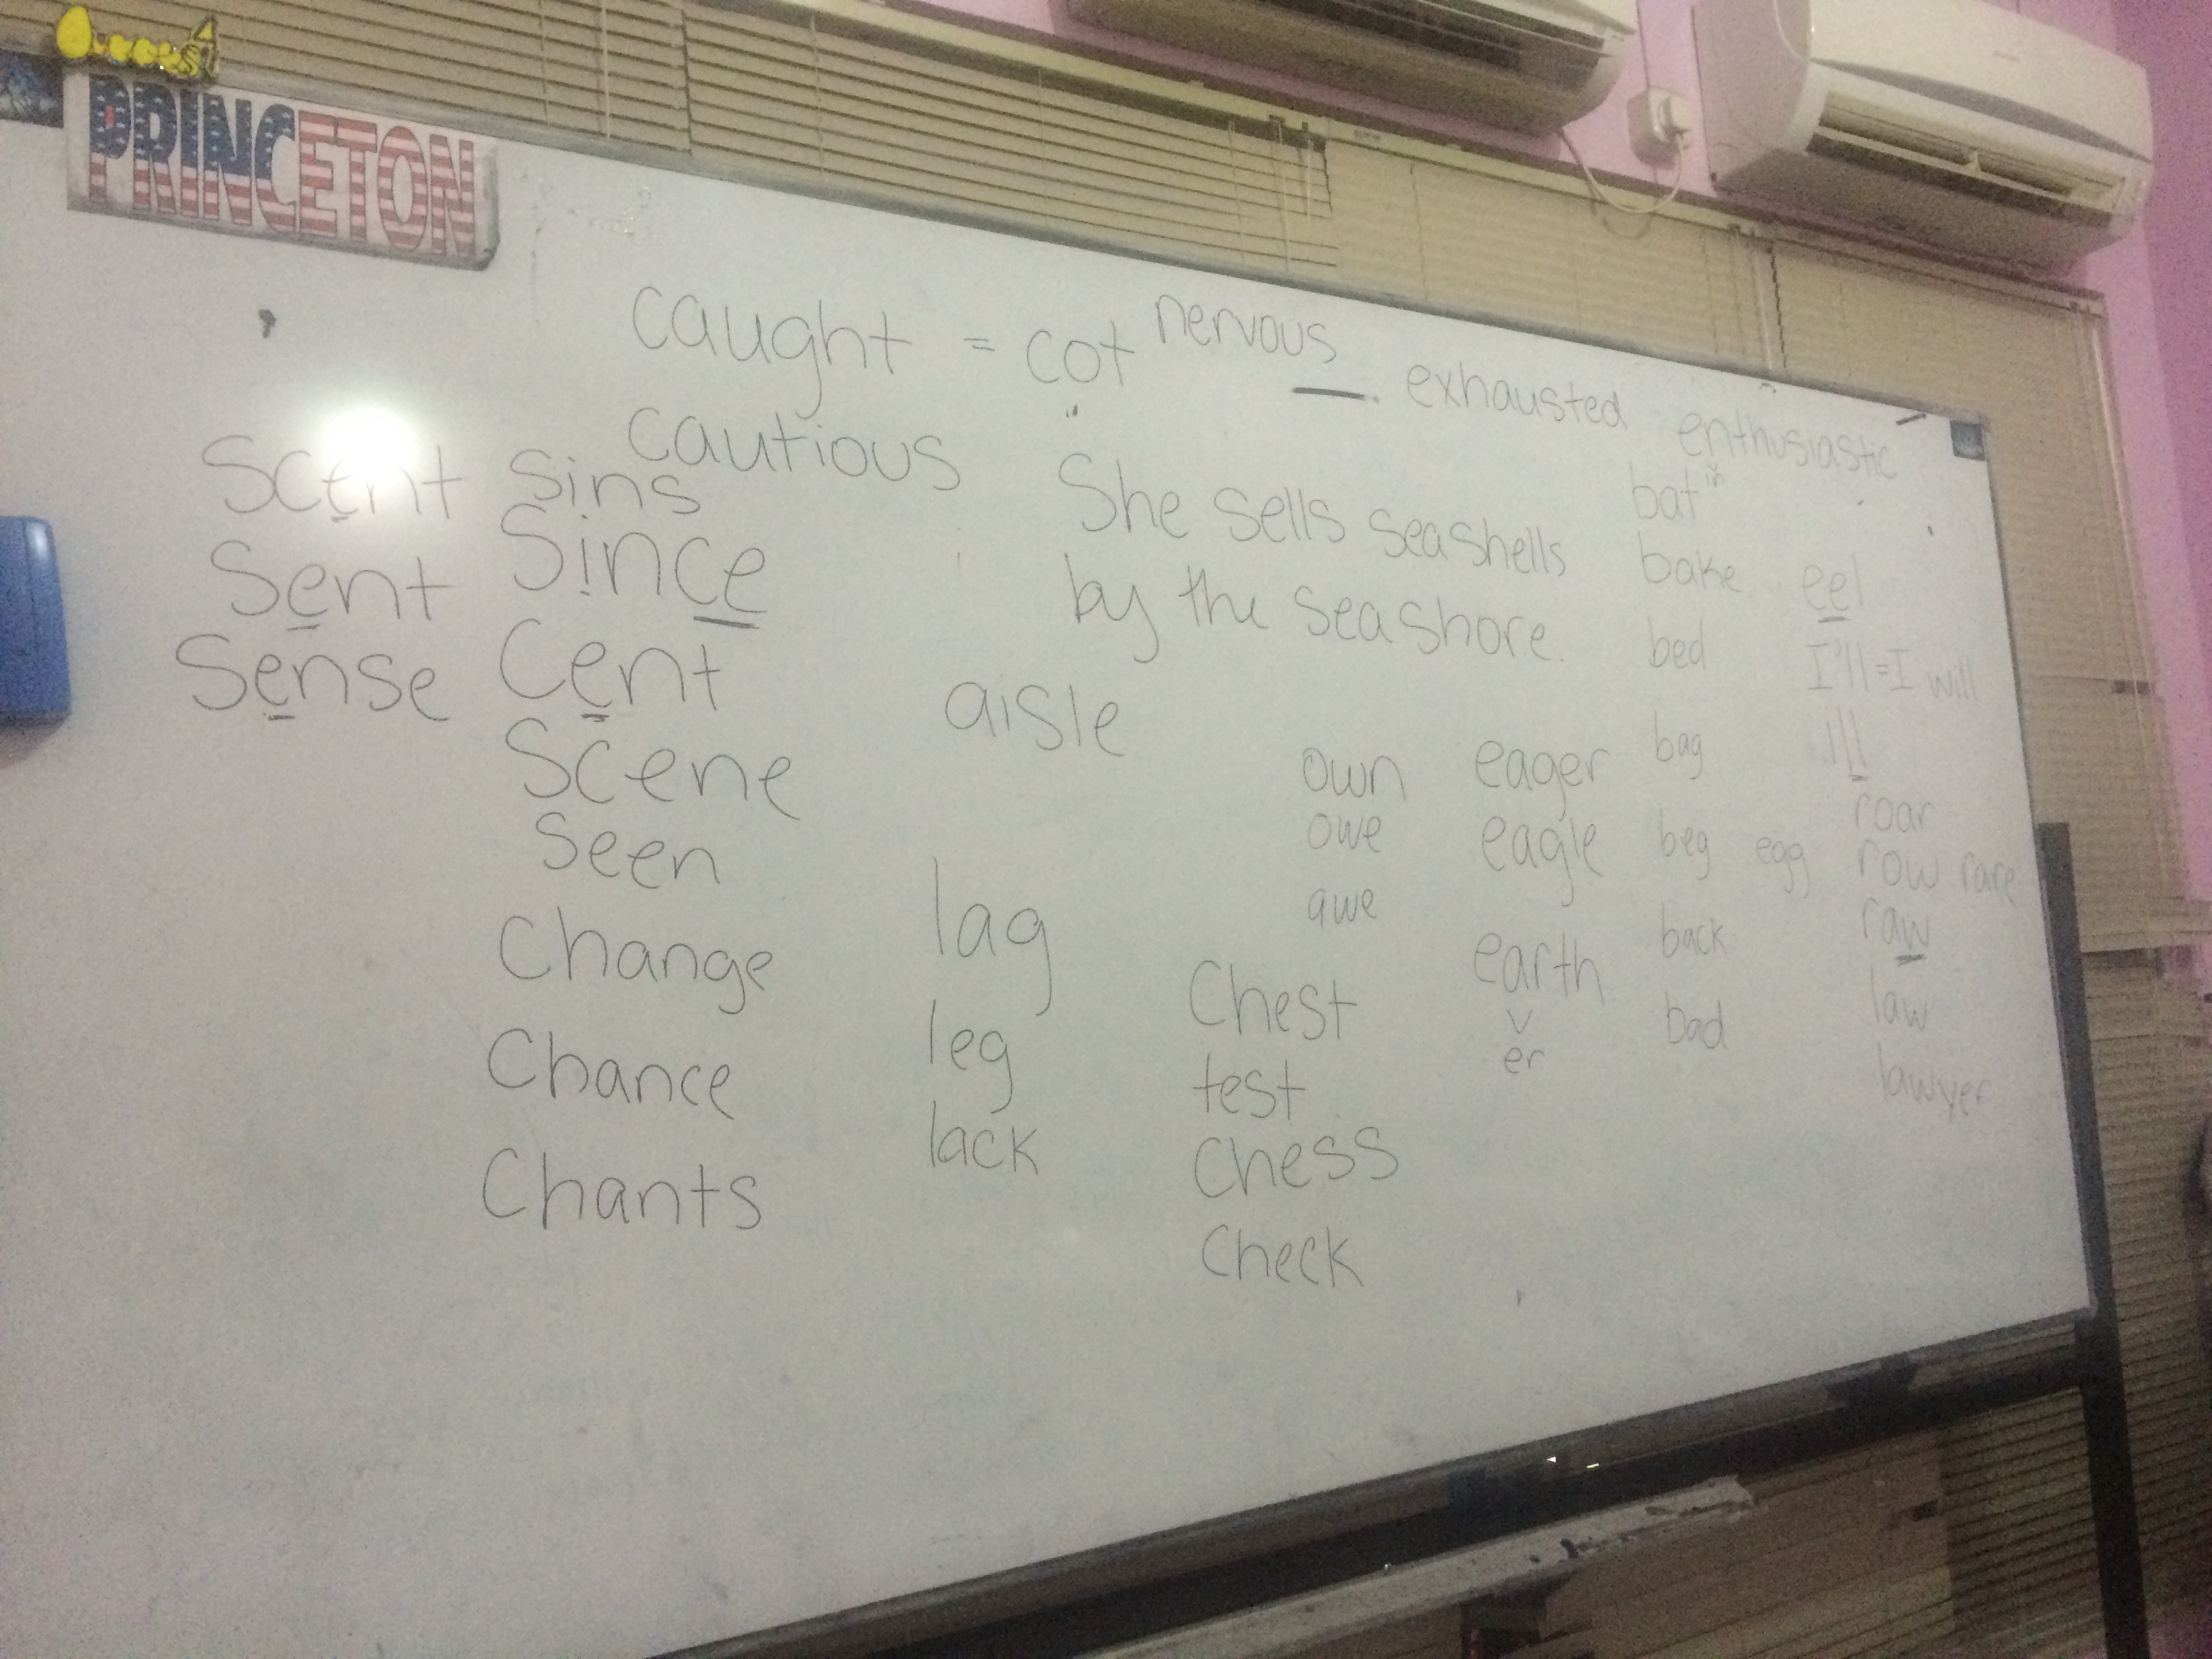 PRINCETON
caught = cot
nervous
exhausted
enthusiastic
in
cautious
Scent
Sent
Sense
Sins
Since
Cent
Scene
Seen
Change
Chance
Chants
She sells seashells
by the seashore.
aisle
lag
leg
lack
own
owe
awe
Chest
test
Chess
Check
eager
eagle
earth
er
bat
bake
bed
bag
beg egg
back
bad
eel
I'll = I will
ill
roar
row rare
raw
law
lawyer